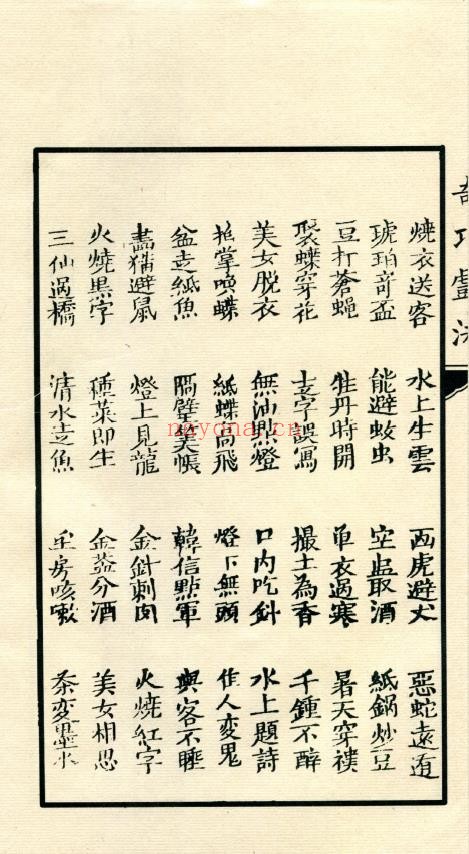 奇巧戲法
燒衣送客 水上生雲 西虎避犬 惡蛇遠遁
琥珀奇盃 能避蚊虫 空盅取酒 紙鍋炒豆
豆打蒼蠅 牡丹時開 单衣過寒 暑天穿襖
聚蝶穿花 字誤寫 撮土為香 千鍾不醉
美女脱衣 無油點燈 口内吃針 水上題詩
拍掌喚蝶 紙蝶高飛 燈下無頭 作人変鬼
盆走紙魚 隔壁美帳 韓信點軍 與客不睡
畫猫避鼠 燈上見龍 金針刺肉 火燒紅字
火燒黑字 種菜即生 金盞分酒 美女相思
三仙過橋 清水走魚 房咳嗽 茶変墨水
nayona.cn